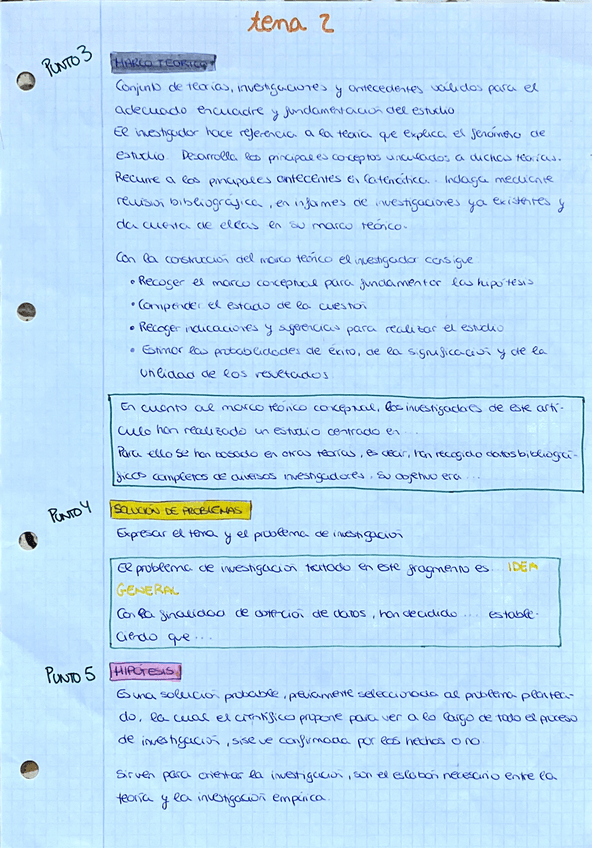 tema 2
PUNTO 3
MARCO TEÓRICO
Conjunto de teorías, investigaciones y antecedentes válidos para el
adecuado encuadre y fundamentación del estudio
El investigador hace referencia a la teoría que explica el fenómeno de
estudio. Desarrolla los principales conceptos vinculados a dichas teorías.
Recurre a los principales antecentes en la temática. Indaga mediente
revisión bibliográfica, en informes de investigaciones ya existentes y
da cuenta de ellas en su marco teórico.
Con la construcción del marco teórico el investigador consigue
• Recoger el marco conceptual para fundamentar las hipótesis
• Comprender el estado de la cuestión
• Recoger indicaciones y sugerencias para realizar el estudio
• Estimar las probabilidades de éxito, de la significación y de la
utilidad de los resultados
En cuanto al marco teórico conceptual, los investigadores de este artí-
culo han realizado un estudio centrado en ...
Para ello se han basado en otras teorías, es decir, han recogido datos bibliográ-
ficos completos de diversos investigadores. Su objetivo era ...
PUNTO 4
SOLUCIÓN DE PROBLEMAS
Expresar el tema y el problema de investigación
El problema de investigación tratado en este fragmento es ... IDEA
GENERAL
Con la finalidad de obtención de datos, han decidido ... estable-
ciendo que ...
PUNTO 5
HIPÓTESIS
Es una solución probable, previamente seleccionada al problema plantea-
do, la cual el científico propone para ver a lo largo de todo el proceso
de investigación, si se ve confirmada por los hechos o no.
Sirven para orientar la investigación, son el eslabón necesario entre la
teoría y la investigación empírica.